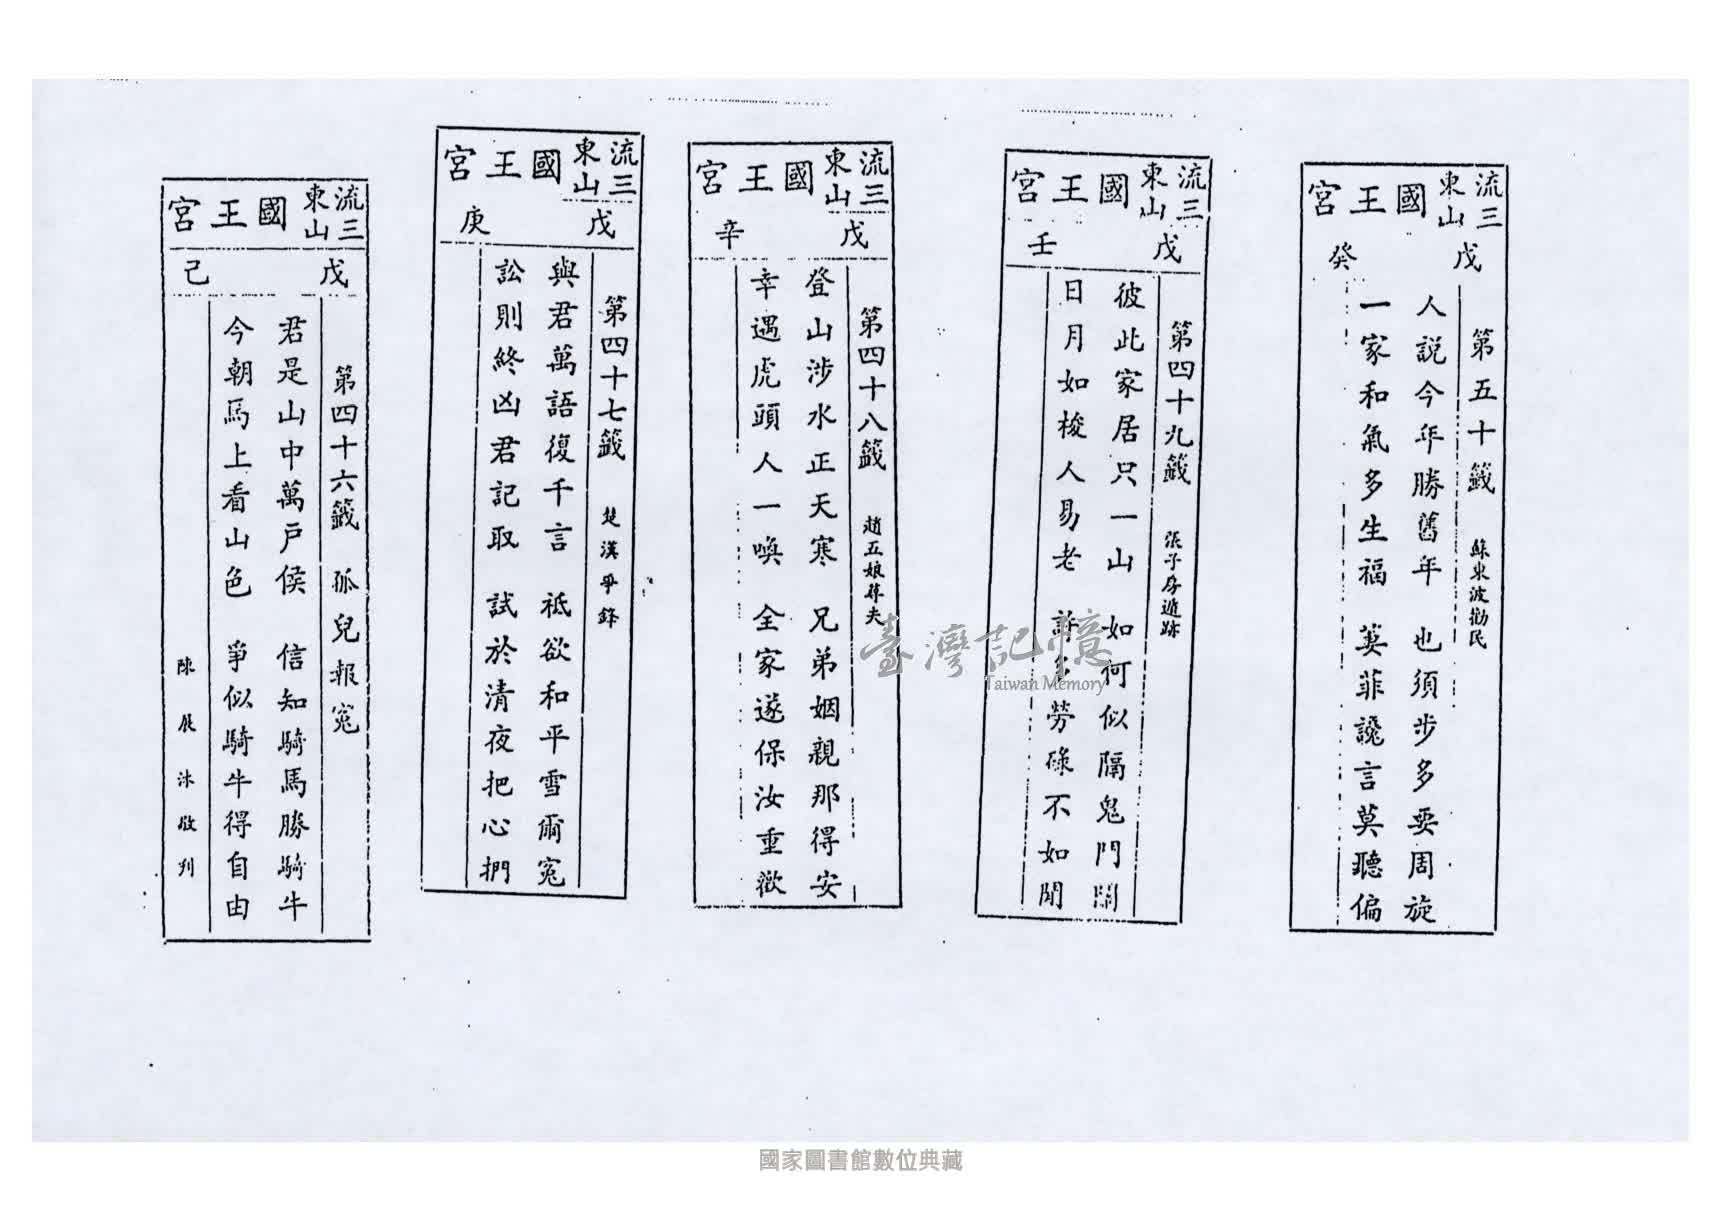 流東
三山
國王宮
戊己
第四十六籤 孤兒報冤
君是山中萬戶侯 信知騎馬勝騎牛
今朝馬上看山色 爭似騎牛得自由
陳展沐敬刊
流東
三山
國王宮
戊庚
第四十七籤 楚漢爭鋒
與君萬語復千言 祗欲和平雪爾冤
訟則終凶君記取 試於清夜把心捫
流東
三山
國王宮
戊辛
第四十八籤 趙五娘尋夫
登山涉水正天寒 兄弟姻親那得安
幸遇虎頭人一喚 全家遂保汝重歡
流東
三山
國王宮
戊壬
第四十九籤 張子房遁跡
彼此家居只一山 如何似隔鬼門關
日月如梭人易老 許多勞碌不如閒
流東
三山
國王宮
戊癸
第五十籤 蘇東波勸民
人說今年勝舊年 也須步多要周旋
一家和氣多生福 萋菲讒言莫聽偏
臺灣記憶
Taiwan Memory
國家圖書館數位典藏